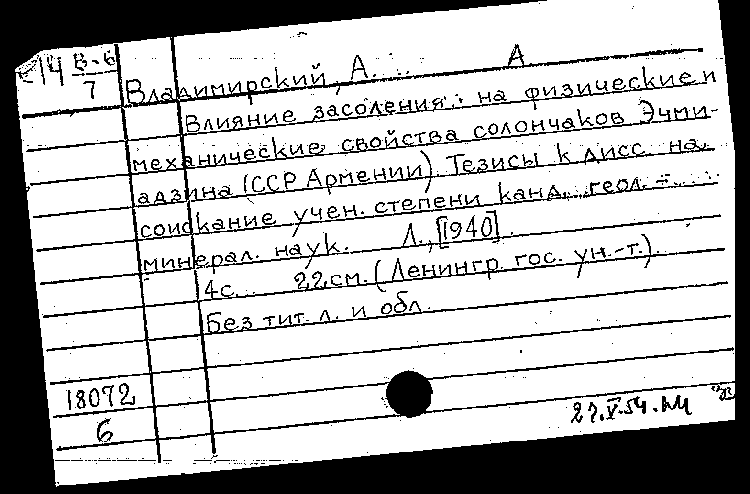 14 В-6
7
Владимирский, А. А
Влияние засоления на физические и
механические свойства солончаков Эчми-
адзина (ССР Армении). Тезисы к дисс. на
соискание учен. степени канд. геол.-
минерал. наук. Л., [1940].
4с. 22см. (Ленингр. гос. ун.-т.).
Без тит. л. и обл.
18072
6
27.V.54.